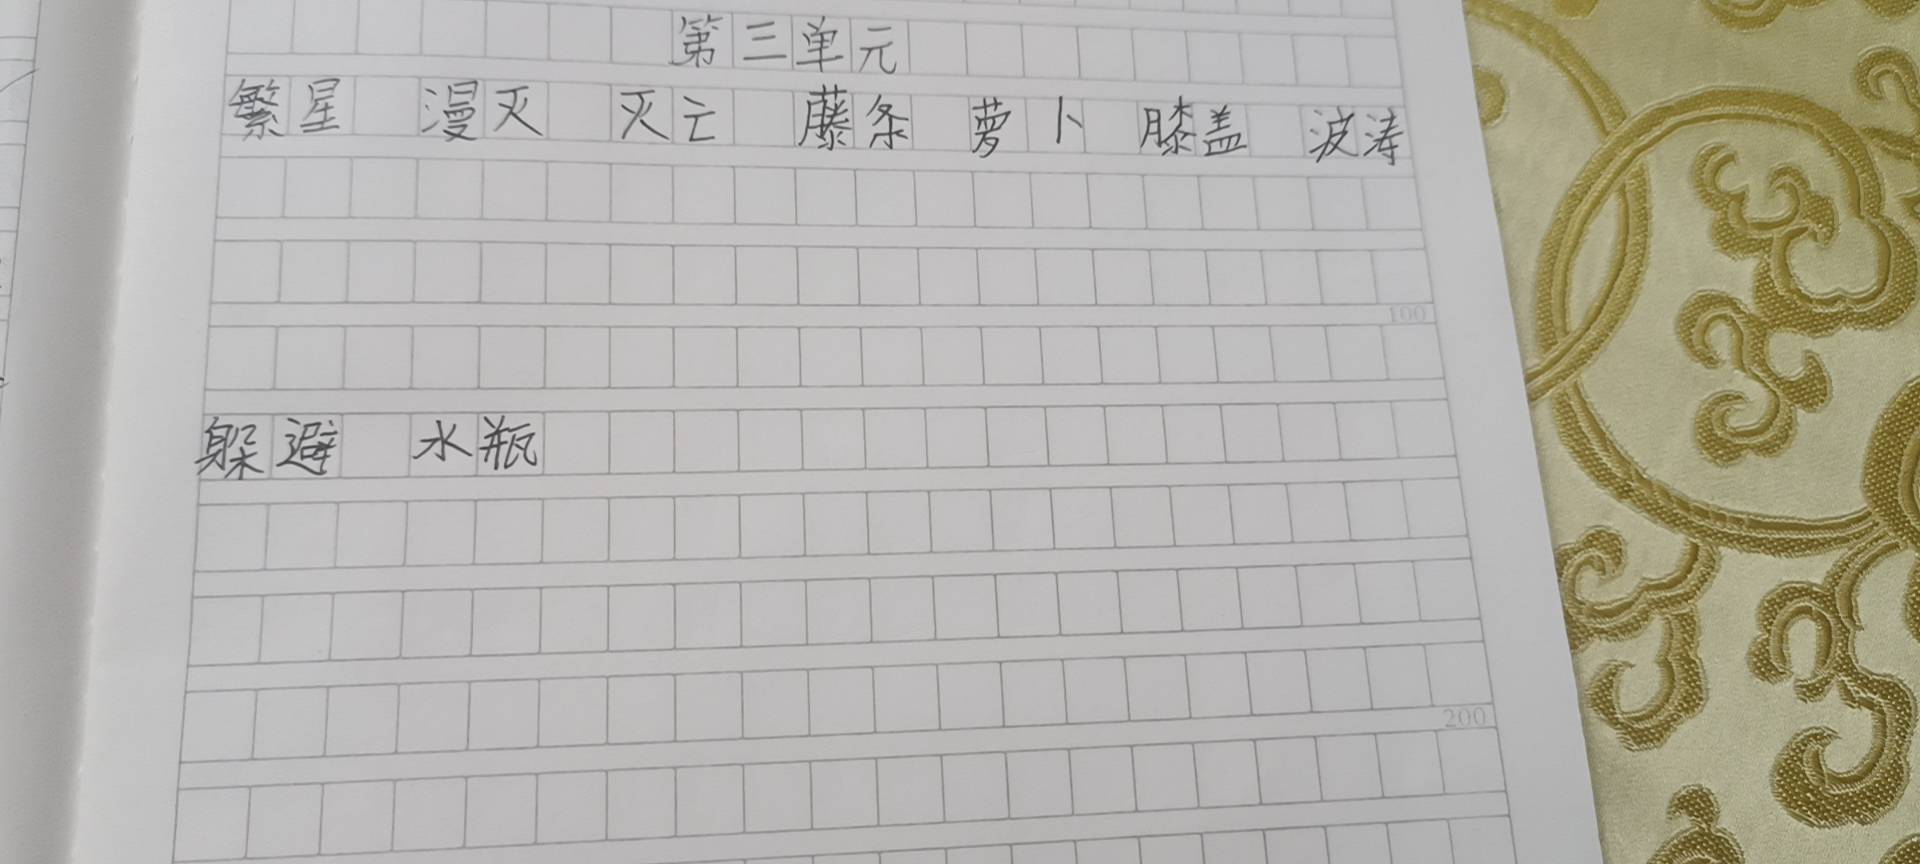 第三单元
繁星 漫灭 灭亡 藤条 萝卜 膝盖 波涛
100
躲避 水瓶
200